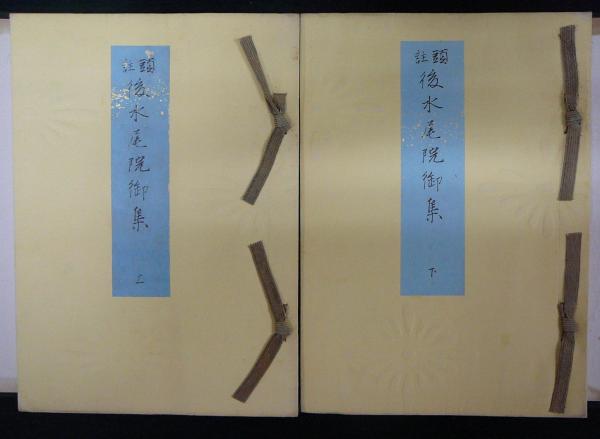 頭註 後水尾院御集 下
頭註 後水尾院御集 上